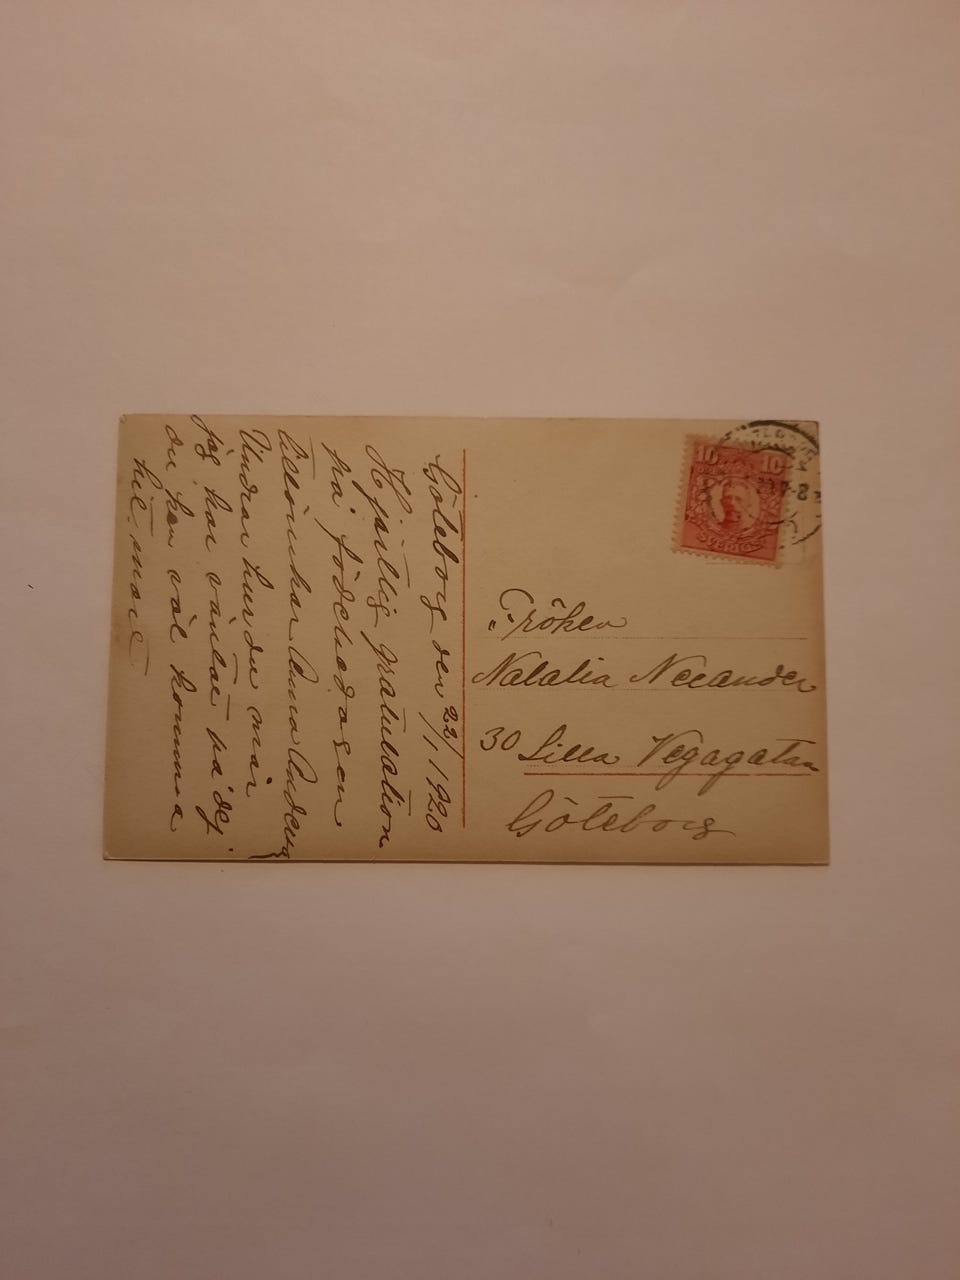 Göteborg den 22/1 1920
Hjärtlig gratulation
på födelsedagen
tillönskar Anna
Undrar hur du mår
jag har väntat på dej
du kan väl komma
hit snart
10 10
SVERIGE
Fröken
Natalia Neeander
30 Lilla Vegagatan
Göteborg